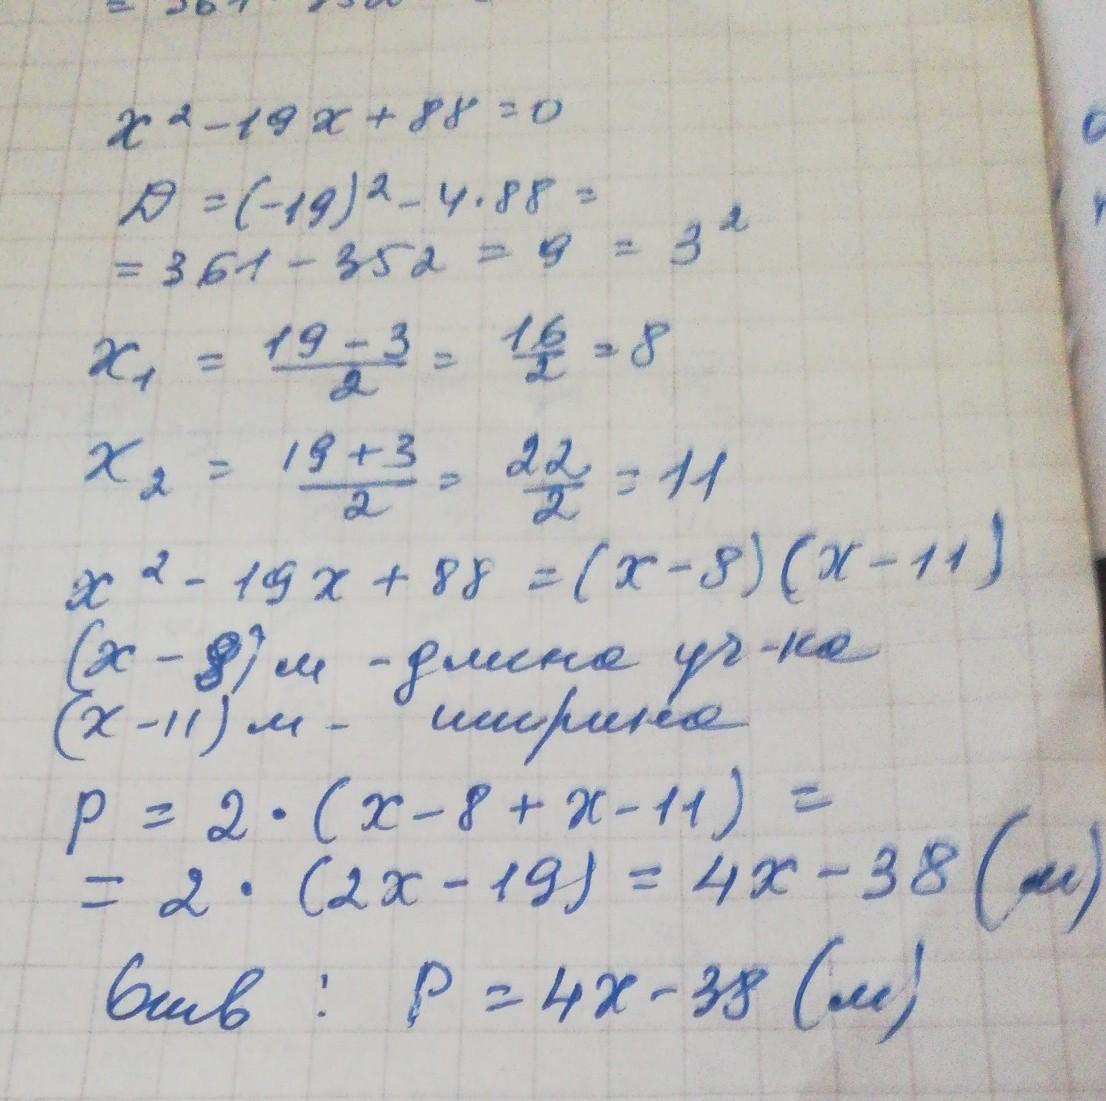 x² - 19x + 88 = 0
D = (-19)² - 4·88 =
= 361 - 352 = 9 = 3²
x₁ = (19 - 3)/2 = 16/2 = 8
x₂ = (19 + 3)/2 = 22/2 = 11
x² - 19x + 88 = (x - 8)(x - 11)
(x - 8) м - длина уч-ка
(x - 11) м - ширина
P = 2·(x - 8 + x - 11) =
= 2·(2x - 19) = 4x - 38 (м)
Отв : P = 4x - 38 (м)